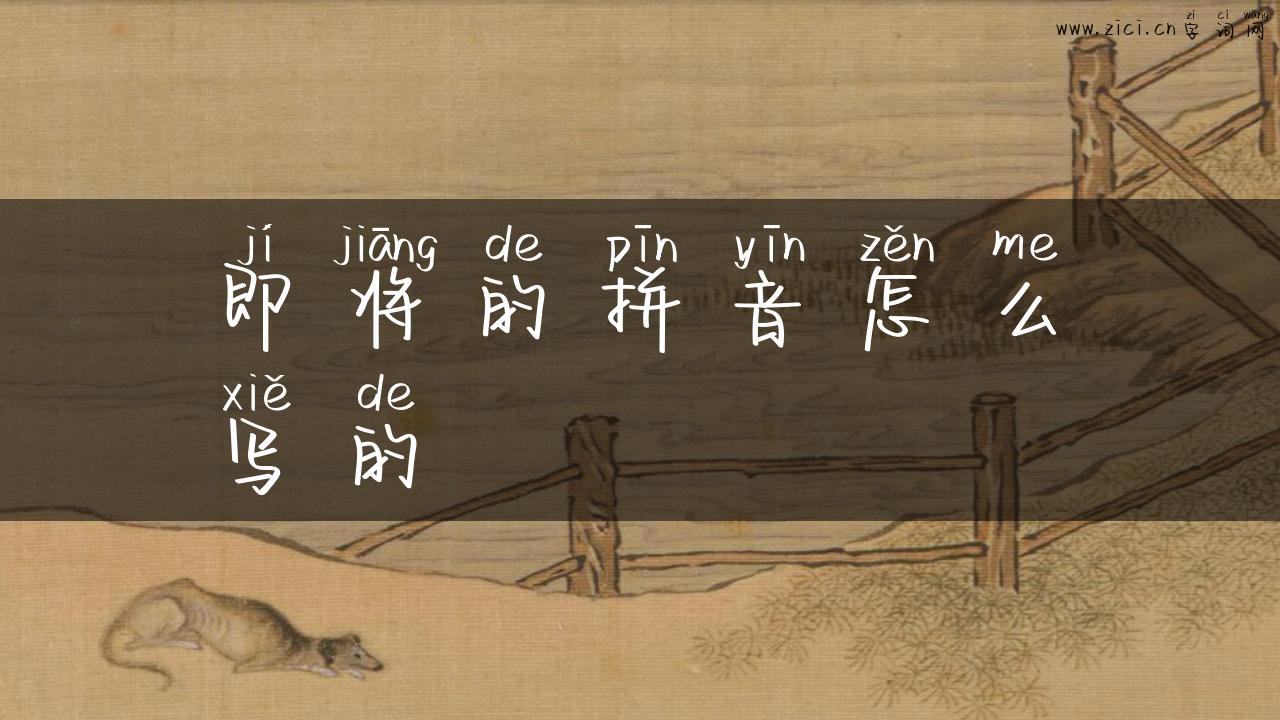 zì cí wǎng
www.zici.cn 字词网
jí jiāng de pīn yīn zěn me
即将的拼音怎么
xiě de
写的